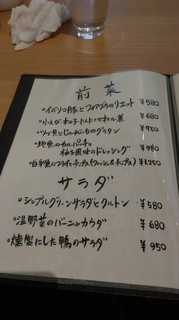 前菜
○イベリコ豚とフォアグラのリエット ¥580
¥680
○ツブ貝とじゃがいものグラタン ¥750
○地魚のカルパッチョ
柚子風味のドレッシング ¥980
○白身魚のフライとチップス(フィッシュ&チップス) ¥1250
サラダ
○シンプルグリーンサラダとクルトン ¥580
○温野菜のバーニャカウダ ¥680
○燻製にした鴨のサラダ ¥950